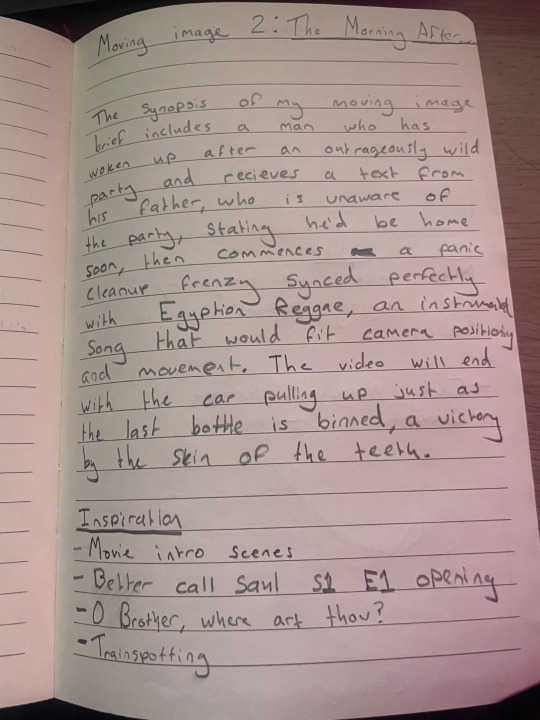 Moving image 2: The Morning After
The synopsis of my moving image
brief includes a man who has
woken up after an outrageously wild
party and recieves a text from
his father, who is unaware of
the party, stating he'd be home
soon, then commences a panic
cleanup frenzy synced perfectly
with Egyption Reggae, an instrumental
song that would fit camera positioning
and movement. The video will end
with the car pulling up just as
the last bottle is binned, a victory
by the skin of the teeth.
Inspiration
- Movie intro scenes
- Better call Saul S1 E1 opening
- O Brother, where art thou?
- Trainspotting